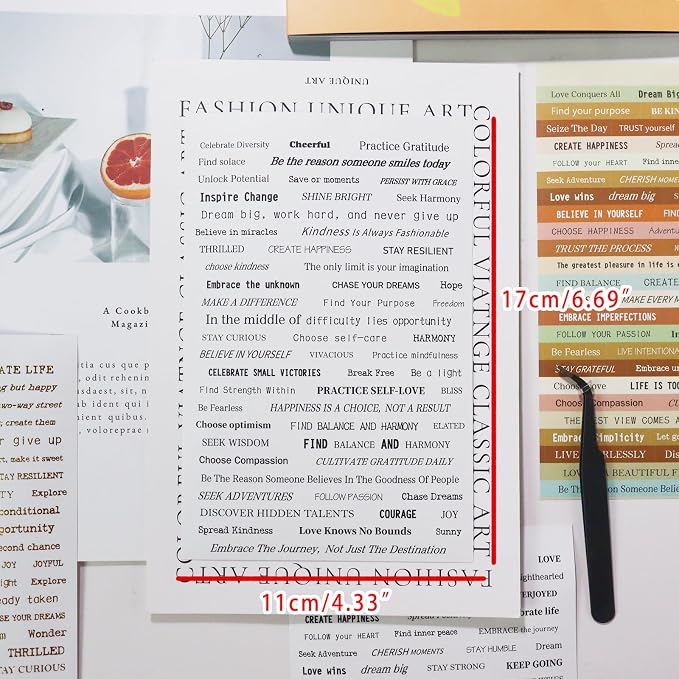 UNIQUE ART
FASHION UNIQUE ART
COLORFUL VIATNGE CLASSIC ART
Celebrate Diversity Cheerful Practice Gratitude
Find solace Be the reason someone smiles today
Unlock Potential Save or moments PERSIST WITH GRACE
Inspire Change SHINE BRIGHT Seek Harmony
Dream big, work hard, and never give up
Believe in miracles Kindness Is Always Fashionable
THRILLED CREATE HAPPINESS STAY RESILIENT
choose kindness The only limit is your imagination
Embrace the unknown CHASE YOUR DREAMS Hope
MAKE A DIFFERENCE Find Your Purpose Freedom
In the middle of difficulty lies opportunity
STAY CURIOUS Choose self-care HARMONY
BELIEVE IN YOURSELF VIVACIOUS Practice mindfulness
CELEBRATE SMALL VICTORIES Break Free Be a light
Find Strength Within PRACTICE SELF-LOVE BLISS
Be Fearless HAPPINESS IS A CHOICE, NOT A RESULT
Choose optimism FIND BALANCE AND HARMONY ELATED
SEEK WISDOM FIND BALANCE AND HARMONY
Choose Compassion CULTIVATE GRATITUDE DAILY
Be The Reason Someone Believes In The Goodness Of People
SEEK ADVENTURES FOLLOW PASSION Chase Dreams
DISCOVER HIDDEN TALENTS COURAGE JOY
Spread Kindness Love Knows No Bounds Sunny
Embrace The Journey, Not Just The Destination
FASHION UNIQUE ART
UNIQUE ART
17cm/6.69″
11cm/4.33″
A Cookb
Magazi
Love Conquers All Dream Big
Find your purpose BE KIN
Seize The Day TRUST yourself
CREATE HAPPINESS Spread
FOLLOW your HEART Find inner
Seek Adventure CHERISH MOMENTS
Love wins dream big
BELIEVE IN YOURSELF FIND
CHOOSE HAPPINESS Adventur
TRUST THE PROCESS
The greatest pleasure in life is
FIND BALANCE CREATE
MAKE EVERY M
EMBRACE IMPERFECTIONS
FOLLOW YOUR PASSION
Be Fearless LIVE INTENTIONAL
STAY GRATEFUL Embrace un
LIFE IS TOO
Compassion CULT
VIEW COMES A
Embrace Simplicity Let go
Be The Reason Someone Believes
ATE LIFE
ng but happy
wo-way street
, create them
ver give up
rt, make it sweet
STAY RESILIENT
TY Explore
conditional
portunity
econd chance
joy JOYFUL
ight Explore
eady taken
SE YOUR DREAMS
m Wonder
THRILLED
TAY CURIOUS
LOVE
ghthearted
ERJOYED
orate life
CREATE HAPPINESS
FOLLOW your HEART Find inner peace EMBRACE the journey
Seek Adventure CHERISH MOMENTS STAY HUMBLE Dream
Love wins dream big STAY STRONG KEEP GOING